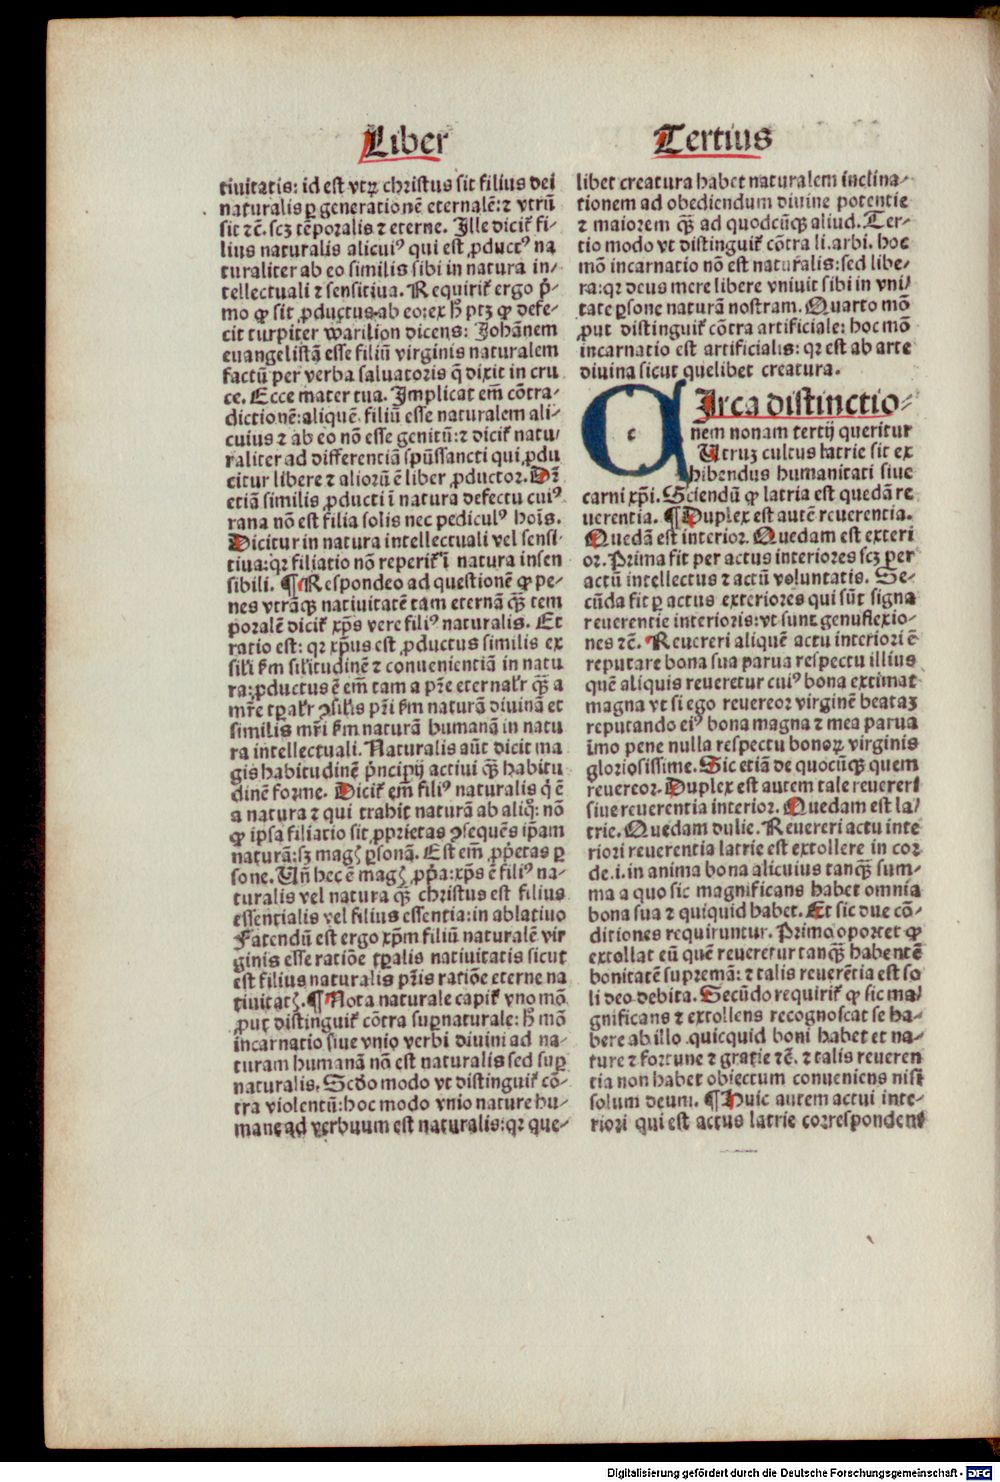 Liber
Tertius
tiuitatis: id est vtꝝ christus sit filius dei
naturalis ꝑ generationē eternalē: ⁊ vtrū
sit ⁊c̄. scꝫ tēporalis ⁊ eterne. Ille dicit᷑ fi⸗
lius naturalis alicuiꝰ qui est ꝓductꝰ na
turaliter ab eo similis sibi in natura in⸗
tellectuali ⁊ sensitiua. Requirit᷑ ergo p̄⸗
mo ꝙ sit ꝓductus ab eo: ex hͦ ptꝫ ꝙ defe⸗
cit turpiter warilion dicens: Johānem
euangelistā esse filiū virginis naturalem
factū per verba saluatoris q̄ dixit in cru
ce. Ecce mater tua. Implicat em̄ cōtra⸗
dictionē: aliquē filiū esse naturalem ali⸗
cuius ⁊ ab eo nō esse genitū: ⁊ dicit᷑ natu⸗
raliter ad differentiā spūssancti qui ꝓdu
citur libere ⁊ aliorū ē liber ꝓductor. Dr̄
etiā similis ꝓducti ī natura defectu cuiꝰ
rana nō est filia solis nec pediculꝰ hoīs.
Dicitur in natura intellectuali vel sensi⸗
tiua: qꝛ filiatio nō reperit᷑ ī natura insen
sibili. ¶ Respondeo ad questionē ꝙ pe⸗
nes vtrāqꝫ natiuitatē tam eternā qͣꝫ tem
poralē dicit᷑ xp̄s vere filiꝰ naturalis. Et
ratio est: qꝛ xp̄us est ꝓductus similis ex
sili fm sil'itudinē ⁊ conuenientiā in natu
ra: ꝓductus ē em̄ tam a pr̄e eternalr̄ qͣꝫ a
mr̄e tꝑalr̄ ꝯsilis pr̄i fm naturā diuinā et
similis mr̄i fm naturā humanā in natu
ra intellectuali. Naturalis aūt dicit ma
gis habitudinē pͥncipij actiui qͣꝫ habitu
dinē forme. Dicit᷑ em̄ filiꝰ naturalis qͥ ē
a natura ⁊ qui trahit naturā ab aliqͦ: nō
ꝙ ipsa filiatio sit ꝓprietas ꝯsequēs ip̄am
naturā: sꝫ magꝭ ꝑsonā. Est em̄ ꝓpͥetas ꝑ
sone. Vn̄ hec ē magꝭ ꝓpͥa: xp̄s ē filiꝰ na⸗
turalis vel natura qͣꝫ christus est filius
essentialis vel filius essentia: in ablatiuo
Fatendū est ergo xp̄m filiū naturalē vir
ginis esse ratiōe tꝑalis natiuitatis sicut
est filius naturalis pr̄is ratiōe eterne na
tiuitatꝭ. ¶ Nota naturale capit᷑ vno mō
ꝓut distinguit᷑ cōtra suꝑnaturale: hͦ mō
incarnatio siue vnio verbi diuini ad na⸗
turam humanā nō est naturalis sed suꝑ
naturalis. Scd̄o modo vt distinguit᷑ cō⸗
tra violentū: hoc modo vnio nature hu⸗
mane ad verbuum est naturalis: qꝛ que⸗
libet creatura habet naturalem inclina⸗
tionem ad obediendum diuine potentie
⁊ maiorem qͣꝫ ad quodcūqꝫ aliud. Ter⸗
tio modo vt distinguit᷑ cōtra li. arbi. hoc
mō incarnatio nō est naturalis: sed libe⸗
ra: qꝛ deus mere libere vniuit sibi in vni⸗
tate ꝑsone naturā nostram. Quarto mō
ꝓut distinguit᷑ cōtra artificiale: hoc mō
incarnatio est artificialis: qꝛ est ab arte
diuina sicut quelibet creatura.
CIrca distinctio⸗
nem nonam tertij queritur
Vtruꝫ cultus latrie sit ex
hibendus humanitati siue
carni xp̄i. Sciendū ꝙ latria est quedā re
uerentia. ¶ Duplex est autē reuerentia.
Quedā est interior. Quedam est exteri
or. Prima fit per actus interiores scꝫ per
actū intellectus ⁊ actū voluntatis. Se⸗
cūda fit ꝑ actus exteriores qui sūt signa
reuerentie interioris: vt sunt genuflexio⸗
nes ⁊c̄. Reuereri aliquē actu interiori ē
reputare bona sua parua respectu illius
quē aliquis reueretur cuiꝰ bona extimat
magna vt si ego reuereor virginē beataꝫ
reputando eiꝰ bona magna ⁊ mea parua
īmo pene nulla respectu bonoꝝ virginis
gloriosissime. Sic etiā de quocūqꝫ quem
reuereor. Duplex est autem tale reuereri
siue reuerentia interior. Quedam est la⸗
trie. Quedam dulie. Reuereri actu inte
riori reuerentia latrie est extollere in cor
de .i. in anima bona alicuius tanqͣꝫ sum⸗
ma a quo sic magnificans habet omnia
bona sua ⁊ quiquid habet. Et sic due cō⸗
ditiones requiruntur. Primo oportet ꝙ
extollat eū quē reueretur tanqͣꝫ habentē
bonitatē supremā: ⁊ talis reuerētia est so
li deo debita. Secūdo requirit᷑ ꝙ sic ma⸗
gnificans ⁊ extollens recognoscat se ha⸗
bere ab illo quicquid boni habet et na⸗
ture ⁊ fortune ⁊ gratie ⁊c̄. ⁊ talis reueren
tia non habet obiectum conueniens nisi
solum deum. ¶ Huic autem actui inte⸗
riori qui est actus latrie correspondens
Digitalisierung gefördert durch die Deutsche Forschungsgemeinschaft - DFG